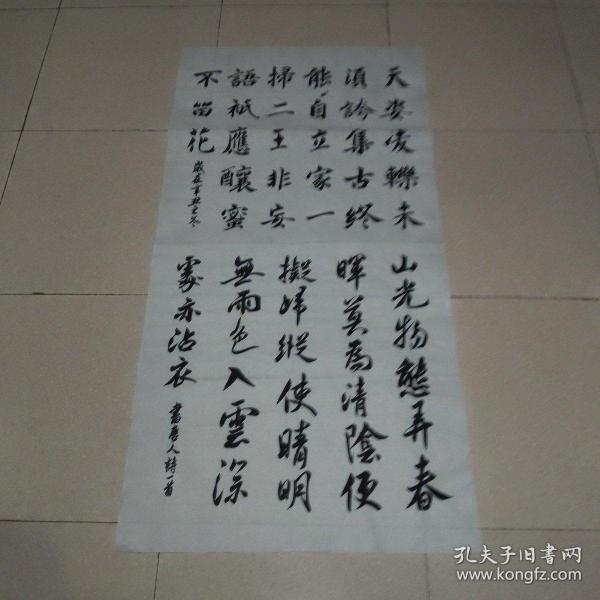 天姿凌轢未
須誇集古終
能自立家一
掃二王非妄
語祇應釀蜜
不留花
歲在辛丑之冬
山光物態弄春
暉莫為清陰便
擬歸縱使晴明
無雨色入雲深
處亦沾衣
書唐人詩一首
孔夫子旧書网
www.kongfz.com